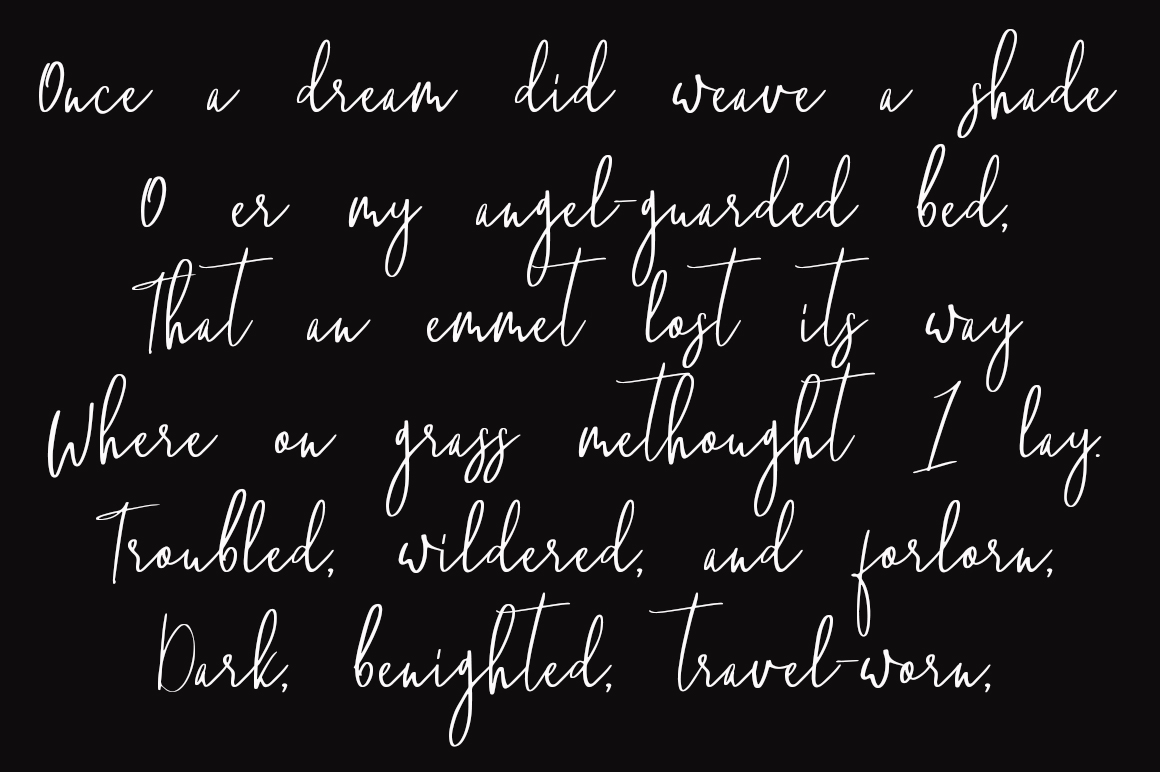 Once a dream did weave a shade
O er my angel-guarded bed,
That an emmet lost its way
Where on grass methought I lay.
Troubled, wildered, and forlorn,
Dark, benighted, travel-worn,